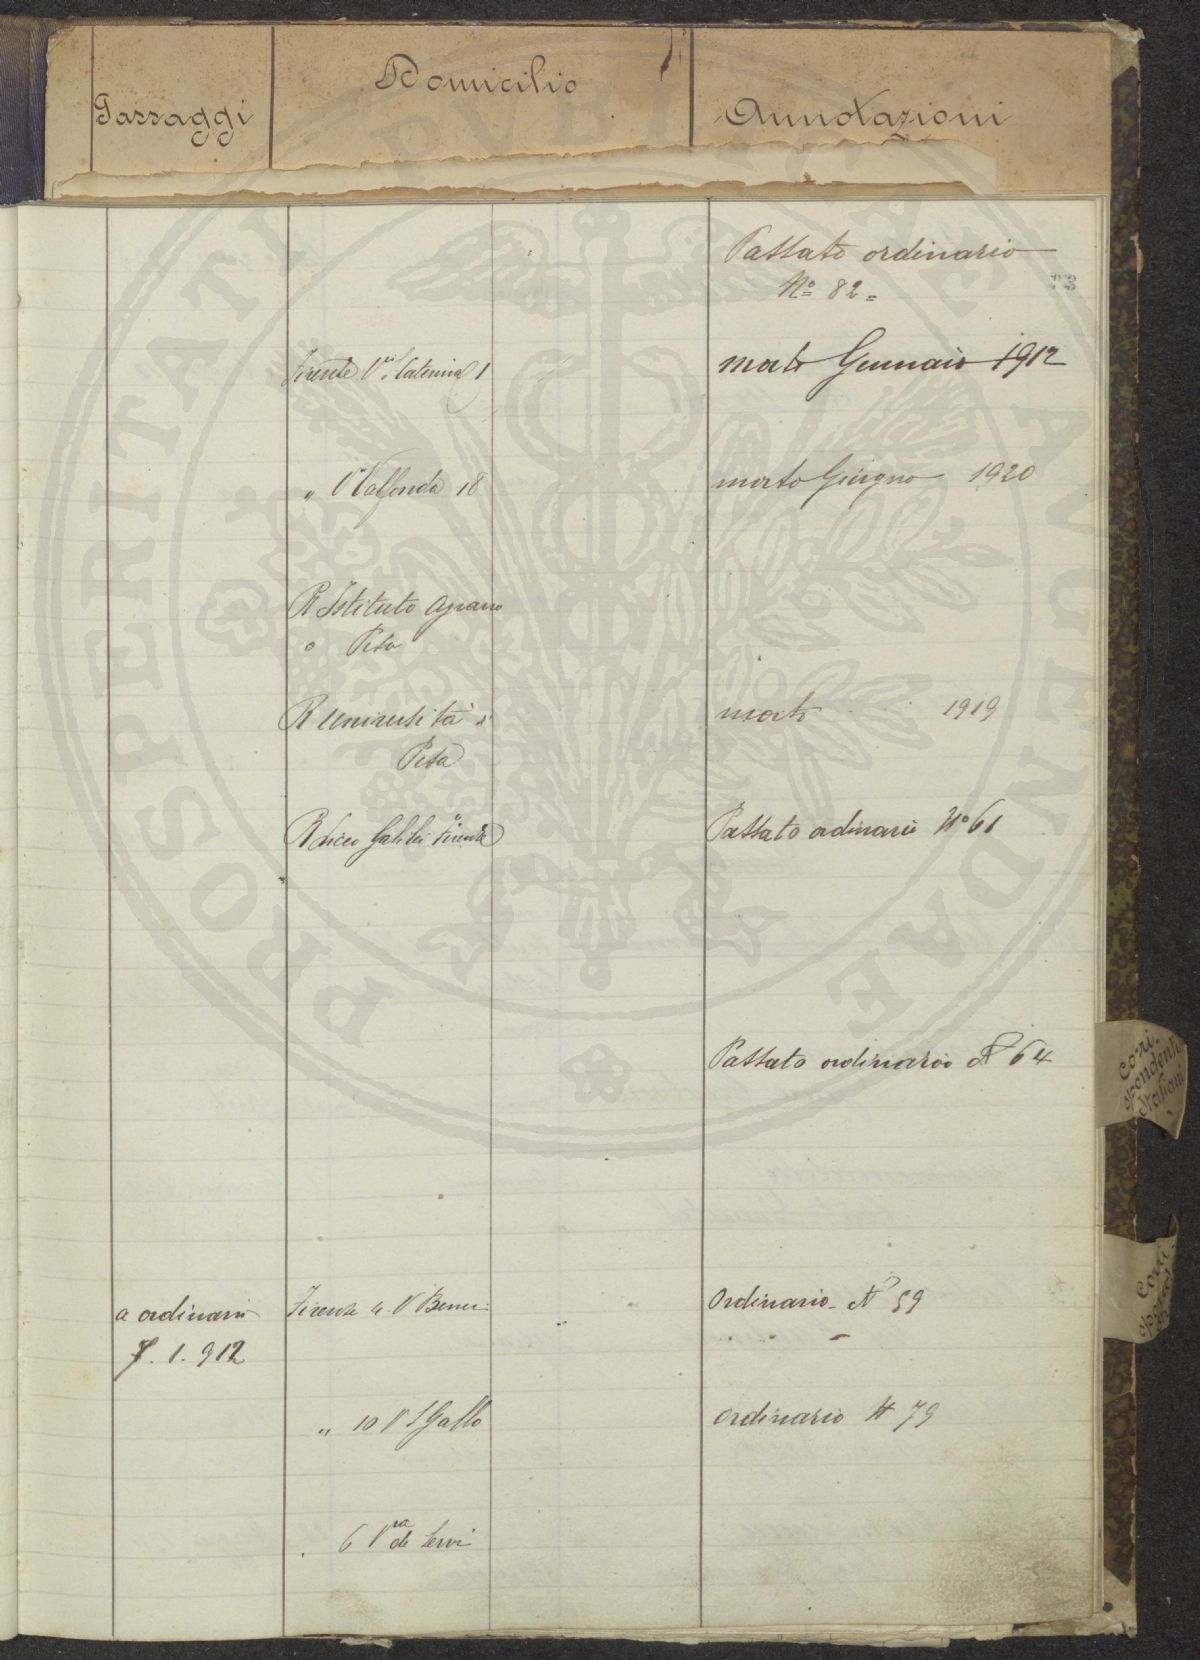 Passaggi
Domicilio
Annotazioni
Passato ordinario
No 82=
73
Firenze Via S. Caterina 1
morto Gennaio 1912
" Va Valfonda 18
morto Giugno 1920
R Istituto agrario
o Pisa
R Università di
Pisa
morto 1919
R Liceo Galilei Firenze
Passato ordinario No 61
Passato ordinario N 64
a ordinario
7. 1. 912
Firenze 4. V Benci
Ordinario N 59
" 10 V S Gallo
ordinario N 79
6 Via de Servi
Corri-
spondenti
Italiani
Corri
PROSPERITATI PUBLICAE AUGENDAE